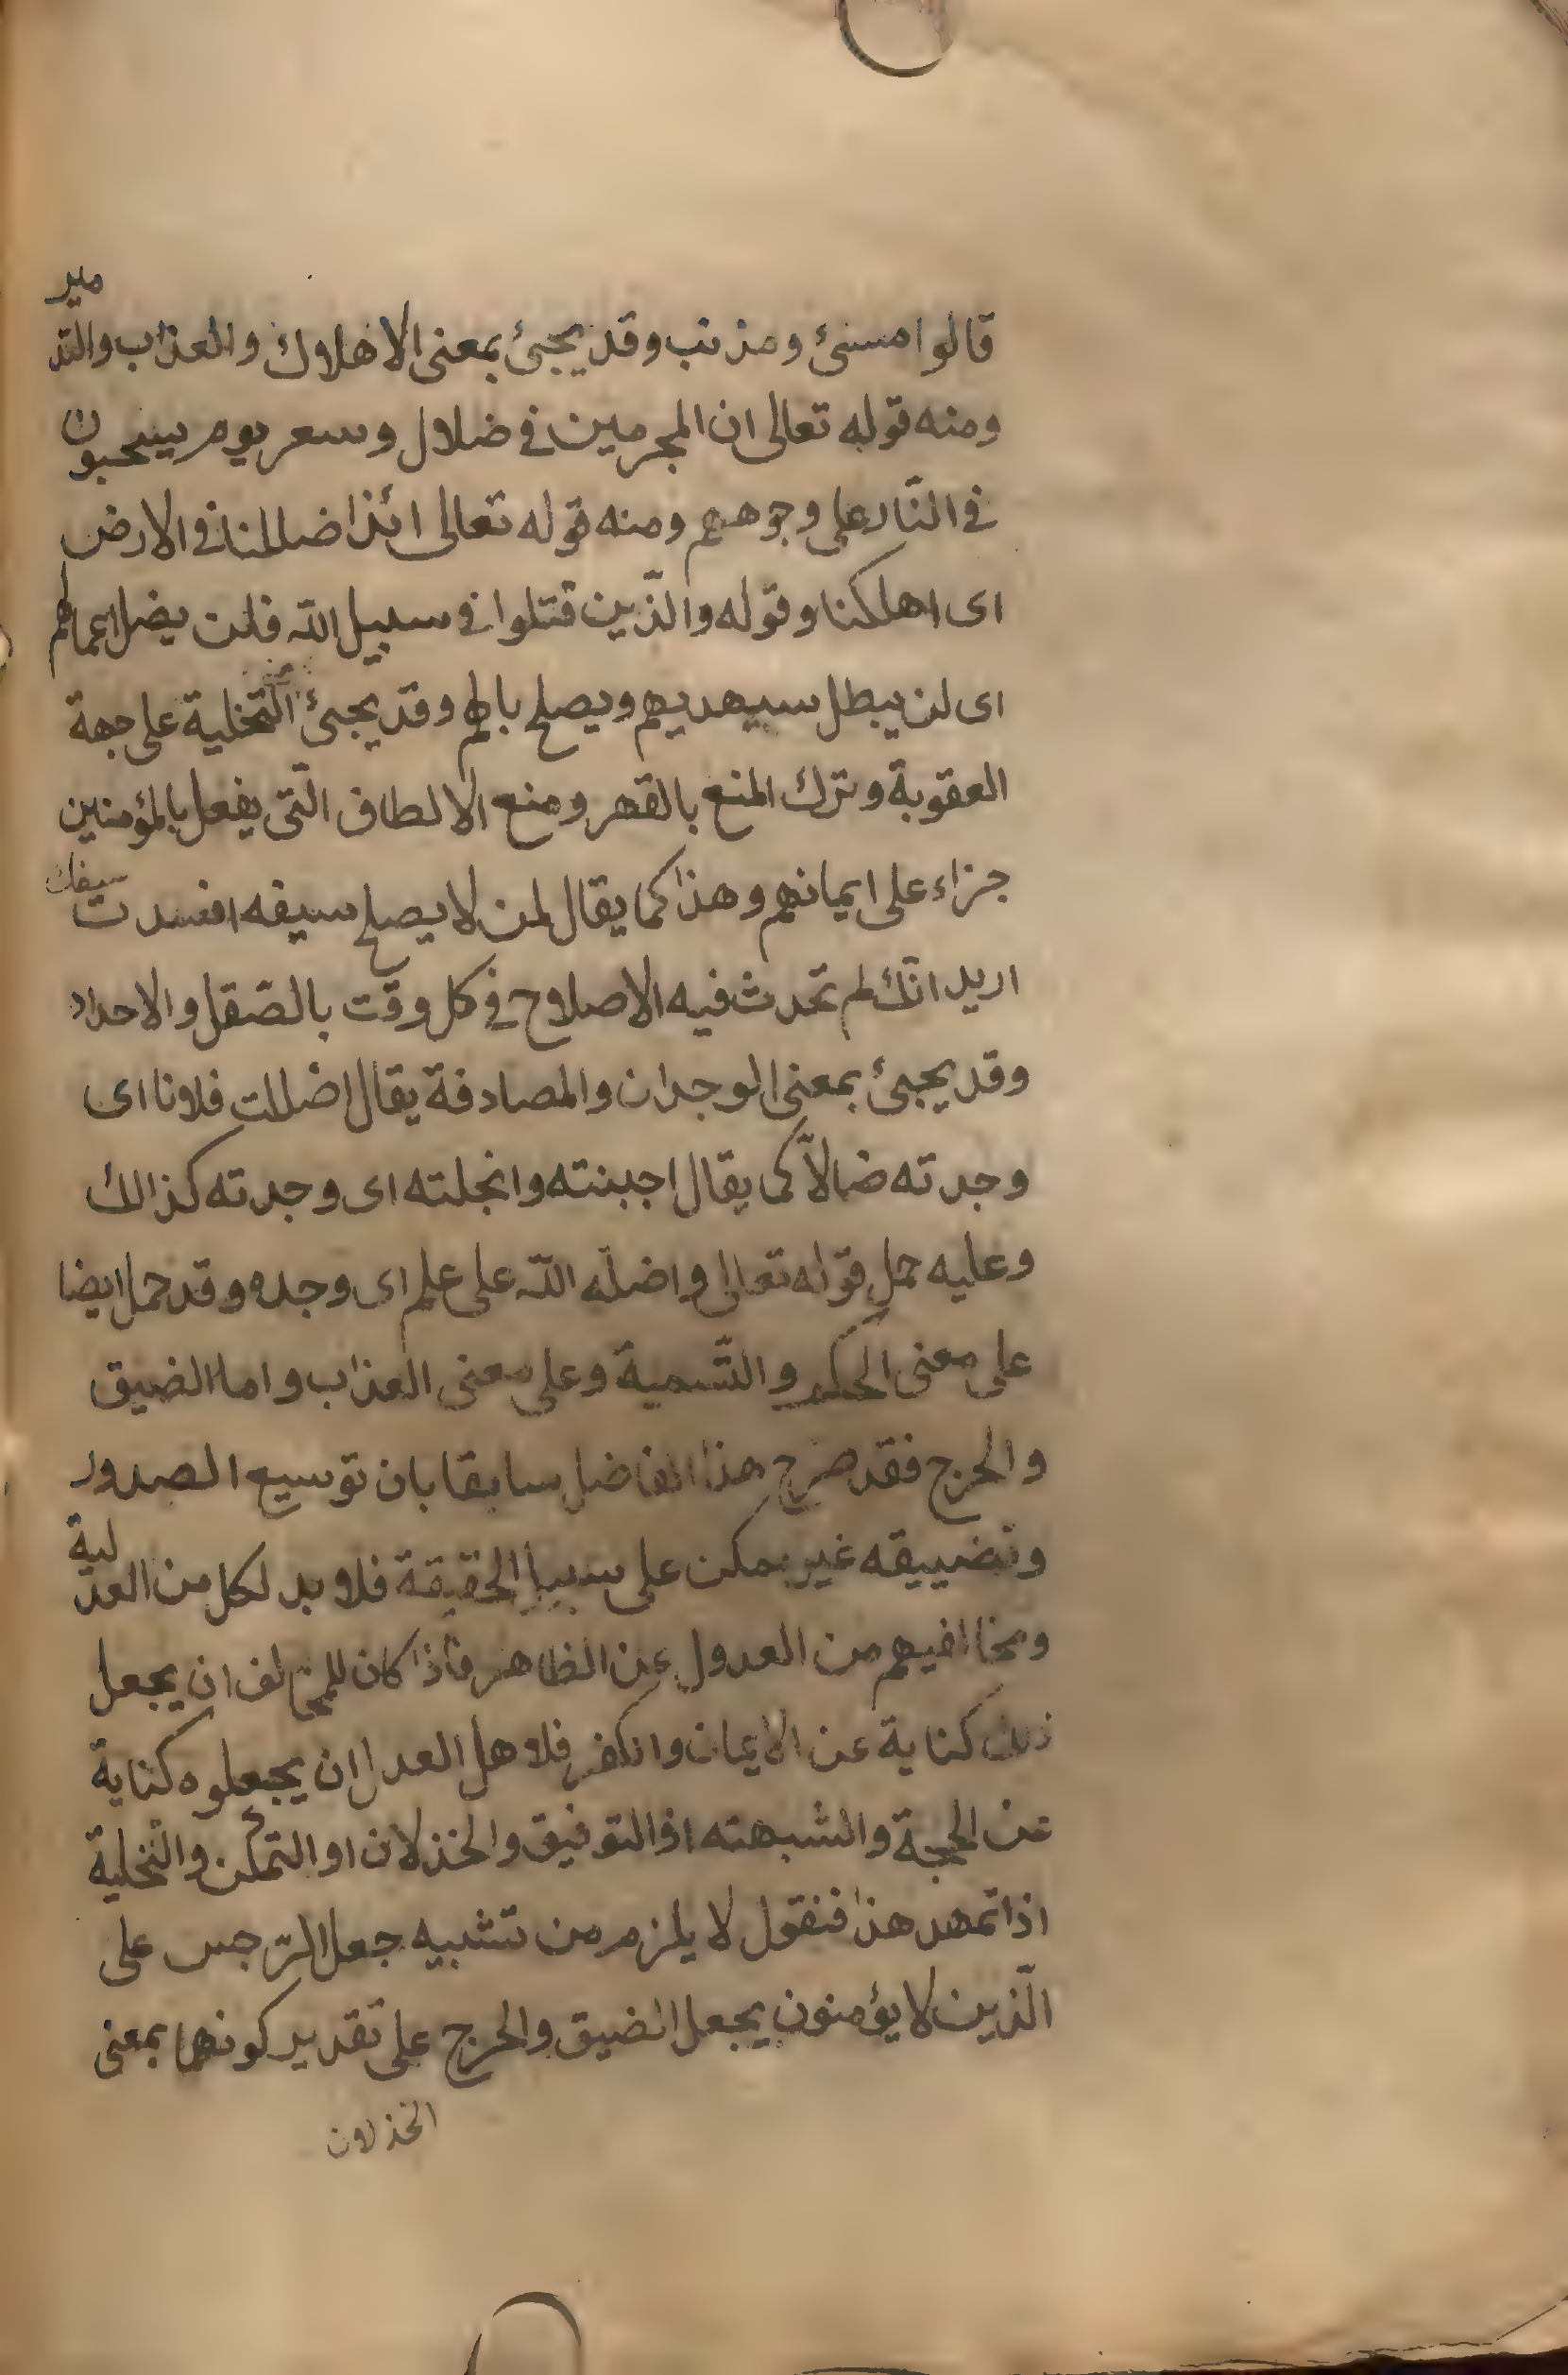 قالوا مسئ ومذنب وقد يجئ بمعنى الاهلاك والعذاب والتدمير
ومنه قوله تعالى ان المجرمين فى ضلال وسعر يوم يسحبون
فى النّار على وجوههم ومنه قوله تعالى ائذا ضللنا فى الارض
اى اهلكنا وقوله والذّين قتلوا فى سبيل اللّه فلن يضل اعمالهم
اى لن يبطل سيهديهم ويصلح بالهم وقد يجئ التّخلية على جهة
العقوبة وترك المنع بالقهر ومنع الالطاف الّتى يفعل بالمؤمنين
جزاء على ايمانهم وهذا كما يقال لمن لا يصلح سيفه افسدت سيفك
اريد انّك لم تحدث فيه الاصلاح فى كل وقت بالصّقل والاحداد
وقد يجئ بمعنى الوجدان والمصادفة يقال اضللت فلانا اى
وجدته ضالاّ كما يقال اجبنته وانجلته اى وجدته كذالك
وعليه حمل قوله تعالى واضلّه اللّه على علم اى وجده وقد حمل ايضا
على معنى الحكم والتّسمية وعلى معنى العذاب واما الضيق
والحرج فقد صرح هذا الفاضل سابقا بان توسيع الصدور
وتضييقه غير ممكن على سبيل الحقيقة فلا بد لكل من العدلية
ومخالفيهم من العدول عن الظاهر فاذا كان للمخالف ان يجعل
ذلك كناية عن الايمان والكفر فلاهل العدل ان يجعلوه كناية
عن الحجة والشبهته اذ التوفيق والخذلان او التمكّن والتّخلية
اذا تمهد هذا فنقول لا يلزم من تشبيه جعل الرّجس على
الّذين لا يؤمنون يجعل الضيق والحرج على تقدير كونهما بمعنى
الخذلان